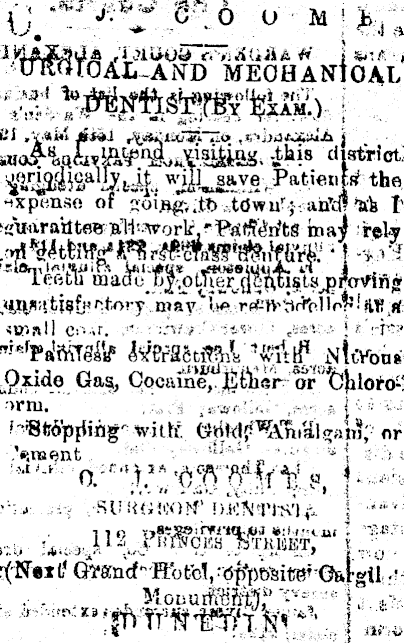 J. COOMBE
URGICAL AND MECHANICAL
DENTIST (BY EXAM.)
As I intend visiting this district
periodically it will save Patients the
expense of going to town; and as I
guarantee all work, Patients may rely
on getting a first-class denture.
Teeth made by other dentists proving
unsatisfactory may be re-modelled at a
small cost.
Painless extractions with Nitrous
Oxide Gas, Cocaine, Ether or Chloro-
orm.
Stopping with Gold, Amalgam, or
ement
O. J. COOMBS,
SURGEON DENTIST,
112 PRINCES STREET,
(Next Grand Hotel, opposite Cargil
Monument),
DUNEDIN